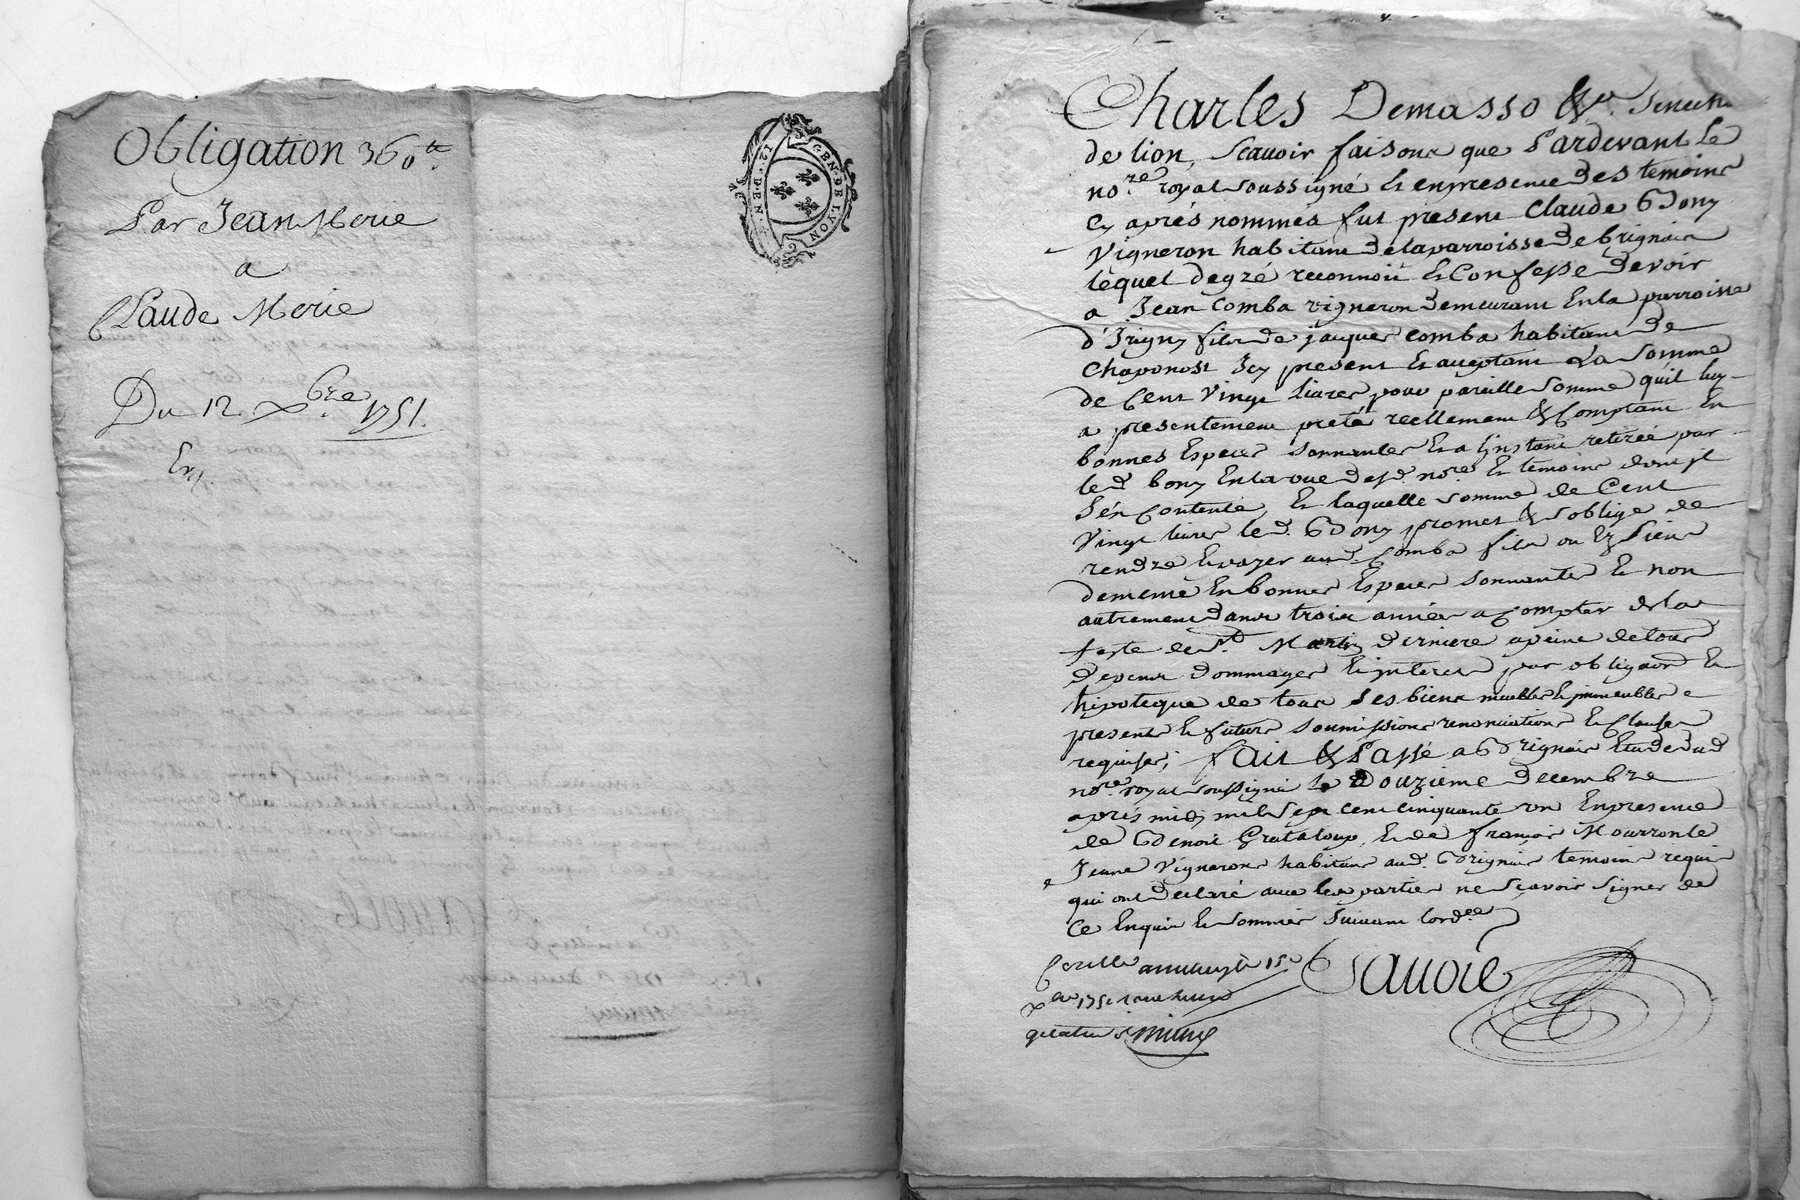 Obligation 360ᵗᵗ
Par Jean Merie
a
Claude Merie
Du 12 xbre 1751.
GEN. DE LYON
12. DEN
Charles Demasso &a. Senechal
de lion, Scauoir faisons que Pardevant Le
nore. royal soussigné et en presence des temoins
Cy aprés nommés fut present Claude Bony
Vigneron habitant de la parroisse de brignais
lequel de gré reconnoit et Confesse devoir
a Jean Comba vigneron demeurant En la parroisse
d'Irigny fils de jacques Comba habitant de
Chaponost Icy present et acceptant La somme
de Cent Vingt livres pour pareille somme quil luy
a presentement preté reellement & Comptant En
bonnes Especes sonnantes Et a linstant retirée par
led. bony En la vue desd. nore. Et temoins dont jl
s'en Contente, Et laquelle somme de Cent
Vingt livres led. Bony promet & soblige de
rendre Et payer aud. Comba fils ou Es siens
de meme En bonnes Especes sonnantes Et non
autrement dans trois années a Compter de la
feste de St. Martin derniere a peine de tous
depens dommages Et jnterets par obligaon Et
hipoteque de tous ses biens meubles Et jmmeubles
presents Et futurs soumissions renonciations Et Clauses
requises; fait & Passé a Brignais Etude dud
nore. royal soussigné le Douzieme Decembre
aprés midy mil sept cent cinquante un En presence
de Benoit Grataloup, Et de françois Mourron le
Jeune Vignerons habitans aud. Brignais temoins requis
qui ont declaré avec les parties ne sçavoir signer de
Ce Enquis Et sommés suivant lordce
Bavoie